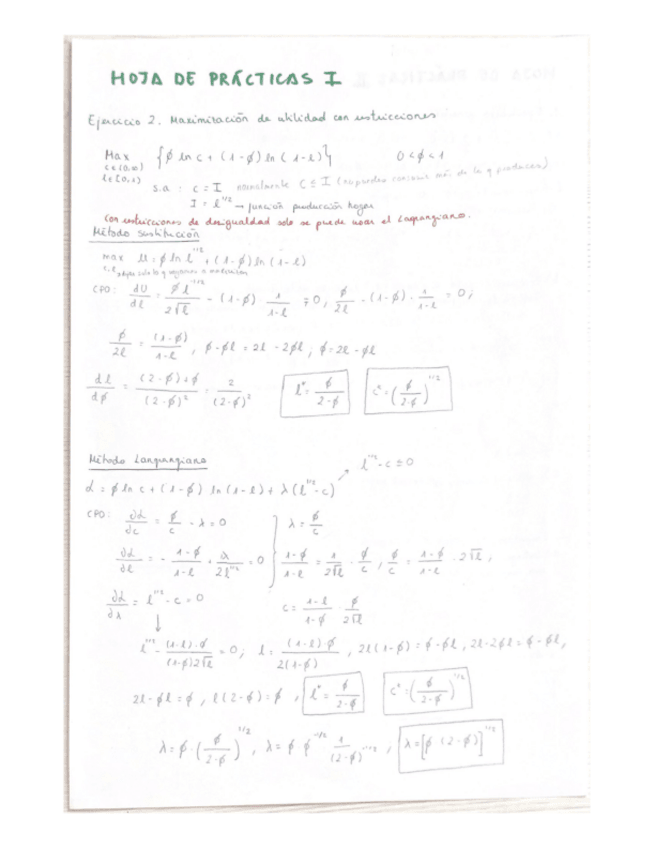 HOJA DE PRÁCTICAS I
Ejercicio 2. Maximización de utilidad con restricciones
Max {ϕ ln c + (1-ϕ) ln (1-l)} 0<ϕ<1
c∈(0,∞)
l∈[0,1) s.a: c = I normalmente c ≤ I (no puedes consumir más de lo q produces)
I = l^1/2 → función producción hogar
Con restricciones de desigualdad solo se puede usar el Lagrangiano.
Método sustitución
max U = ϕ ln l^1/2 + (1-ϕ) ln (1-l)
CPO: dU/dl = ϕ l^-1/2 / 2√l - (1-ϕ) · 1/1-l = 0; ϕ/2l - (1-ϕ) · 1/1-l = 0;
ϕ/2l = (1-ϕ)/1-l, ϕ-ϕl = 2l - 2ϕl; ϕ = 2l - ϕl
dl/dϕ = (2-ϕ)+ϕ / (2-ϕ)² = 2/(2-ϕ)² l* = ϕ/2-ϕ c* = (ϕ/2-ϕ)^1/2
Método Langrangiano l^1/2 - c = 0
L = ϕ ln c + (1-ϕ) ln (1-l) + λ (l^1/2 - c)
CPO: ∂L/∂c = ϕ/c - λ = 0 λ = ϕ/c
∂L/∂l = - 1-ϕ/1-l + λ/2l^1/2 = 0 1-ϕ/1-l = 1/2√l · ϕ/c, ϕ/c = 1-ϕ/1-l · 2√l;
∂L/∂λ = l^1/2 - c = 0 c = 1-l/1-ϕ · ϕ/2√l
↓
l^1/2 - (1-l)·ϕ/(1-ϕ)2√l = 0; l = (1-l)ϕ/2(1-ϕ), 2l(1-ϕ) = ϕ-ϕl, 2l-2ϕl = ϕ-ϕl,
2l-ϕl = ϕ, l(2-ϕ) = ϕ, l* = ϕ/2-ϕ c* = (ϕ/2-ϕ)^1/2
λ = ϕ · (ϕ/2-ϕ)^-1/2, λ = ϕ ϕ^-1/2 1/(2-ϕ)^-1/2, λ = [ϕ (2-ϕ)]^1/2